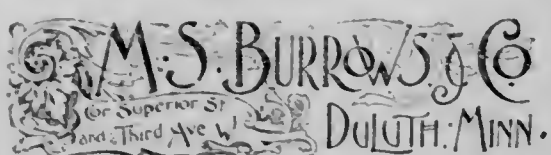 M. S. BURROWS & Co
Cor Superior St
and Third Ave W
DULUTH, MINN.